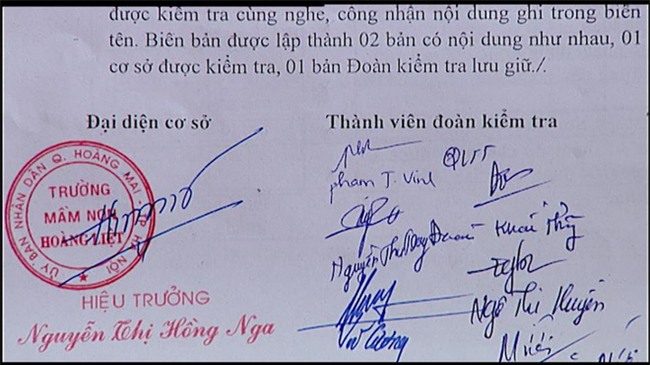 được kiểm tra cùng nghe, công nhận nội dung ghi trong biên
tên. Biên bản được lập thành 02 bản có nội dung như nhau, 01
cơ sở được kiểm tra, 01 bản Đoàn kiểm tra lưu giữ./.
Đại diện cơ sở
Thành viên đoàn kiểm tra
ỦY BAN NHÂN DÂN Q. HOÀNG MAI
HÀ NỘI
TRƯỜNG
MẦM NON
HOÀNG LIỆT
HIỆU TRƯỞNG
Nguyễn Thị Hồng Nga
phạm T. Vinh
Nguyễn Thị
Ngô Thị Huyền
Vũ Cương